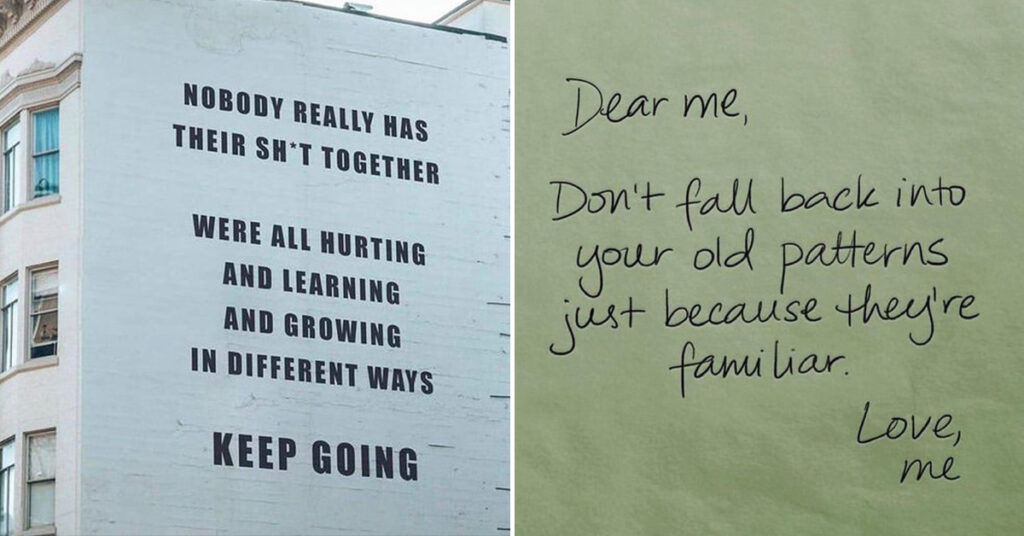 NOBODY REALLY HAS
THEIR SH*T TOGETHER
WERE ALL HURTING
AND LEARNING
AND GROWING
IN DIFFERENT WAYS
KEEP GOING
Dear me,
Don't fall back into
your old patterns
just because they're
familiar.
Love,
me